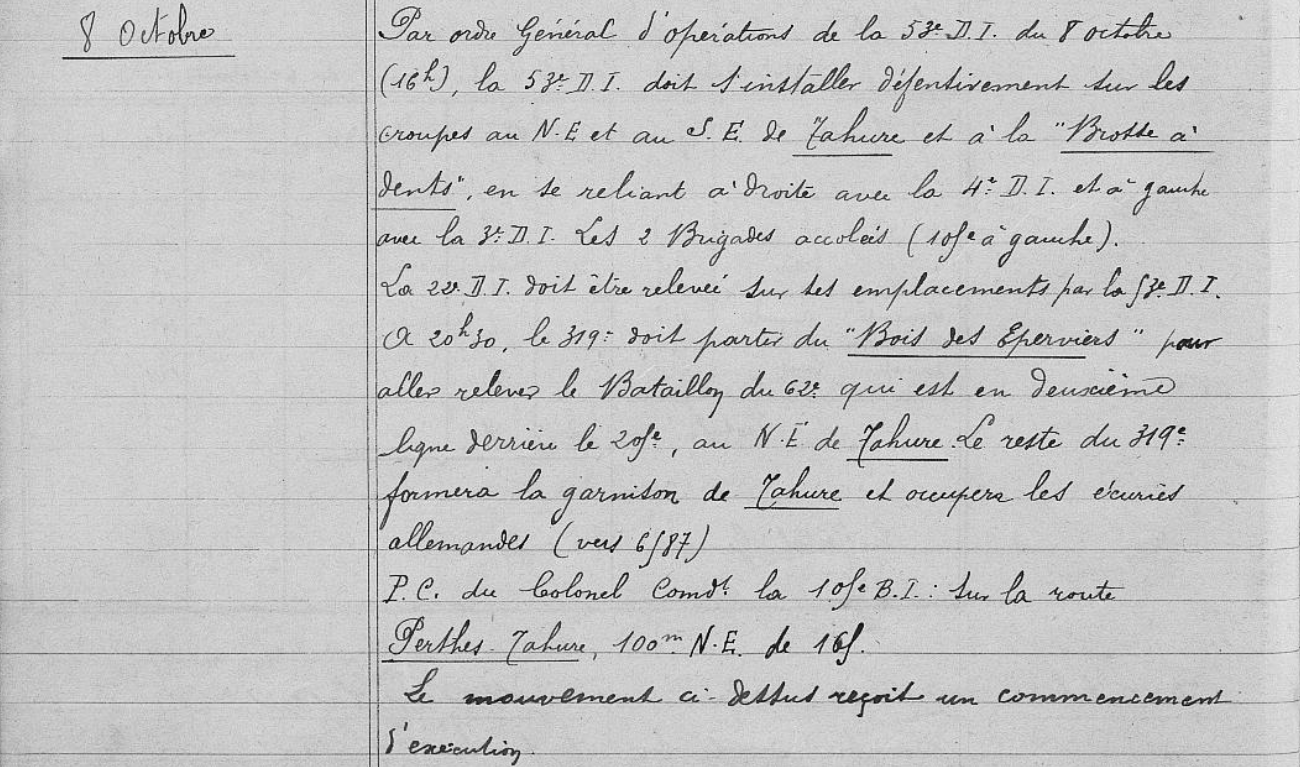 8 Octobre
Par ordre Général d'opérations de la 53e D.I. du 8 octobre
(16h), la 53e D.I. doit s'installer défensivement sur les
croupes au N.E et au S.E. de Tahure et à la "Brosse à
dents", en se reliant à droite avec la 4e D.I. et à gauche
avec la 3e D.I. Les 2 Brigades accolées (105e à gauche).
La 22e D.I. doit être relevée sur ses emplacements par la 53e D.I.
A 20h30, le 319e doit partir du "Bois des Eperviers" pour
aller relever le Bataillon du 62e qui est en deuxième
ligne derrière le 205e, au N.E de Tahure. Le reste du 319e
formera la garnison de Tahure et occupera les écuries
allemandes (vers 6587)
P.C. du Colonel Comdt la 105e B.I. : sur la route
Perthes-Tahure, 100m N.E. de 165.
Le mouvement ci-dessus reçoit un commencement
d'exécution.